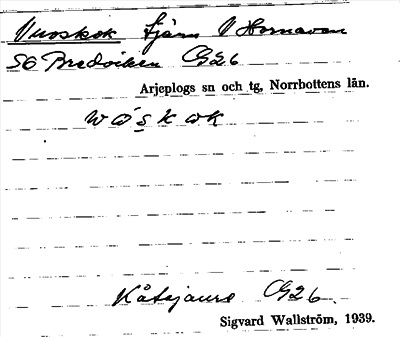 Vuoskok tjärn V Hornavan
SO Bredviken G26
Arjeplogs sn och tg, Norrbottens län.
wo̊skok
Kåtajaure G26
Sigvard Wallström, 1939.